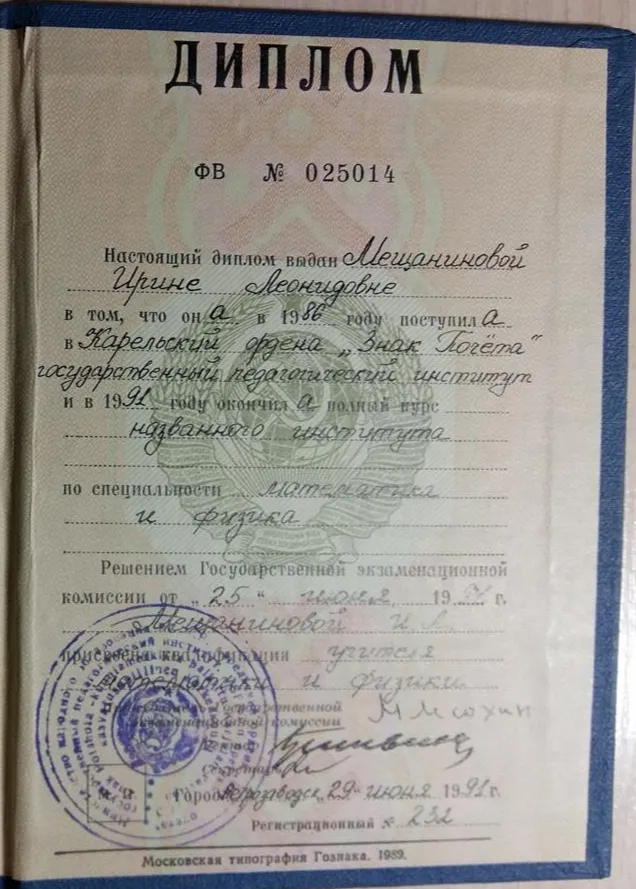 ДИПЛОМ
ФВ № 025014
Настоящий диплом выдан Мещаниновой
Ирине Леонидовне
в том, что он а в 1986 году поступил а
в Карельский ордена „Знак Почёта"
государственный педагогический институт
и в 1991 году окончил а полный курс
названного института
по специальности математика
и физика
Решением Государственной экзаменационной
комиссии от „25" июня 1991 г.
Мещаниновой И.Л.
присвоена квалификация учителя
математики и физики
Председатель Государственной
экзаменационной комиссии
Ректор
Секретарь
Город Петрозаводск „29" июня 1991 г.
Регистрационный № 232
Московская типография Гознака. 1989.